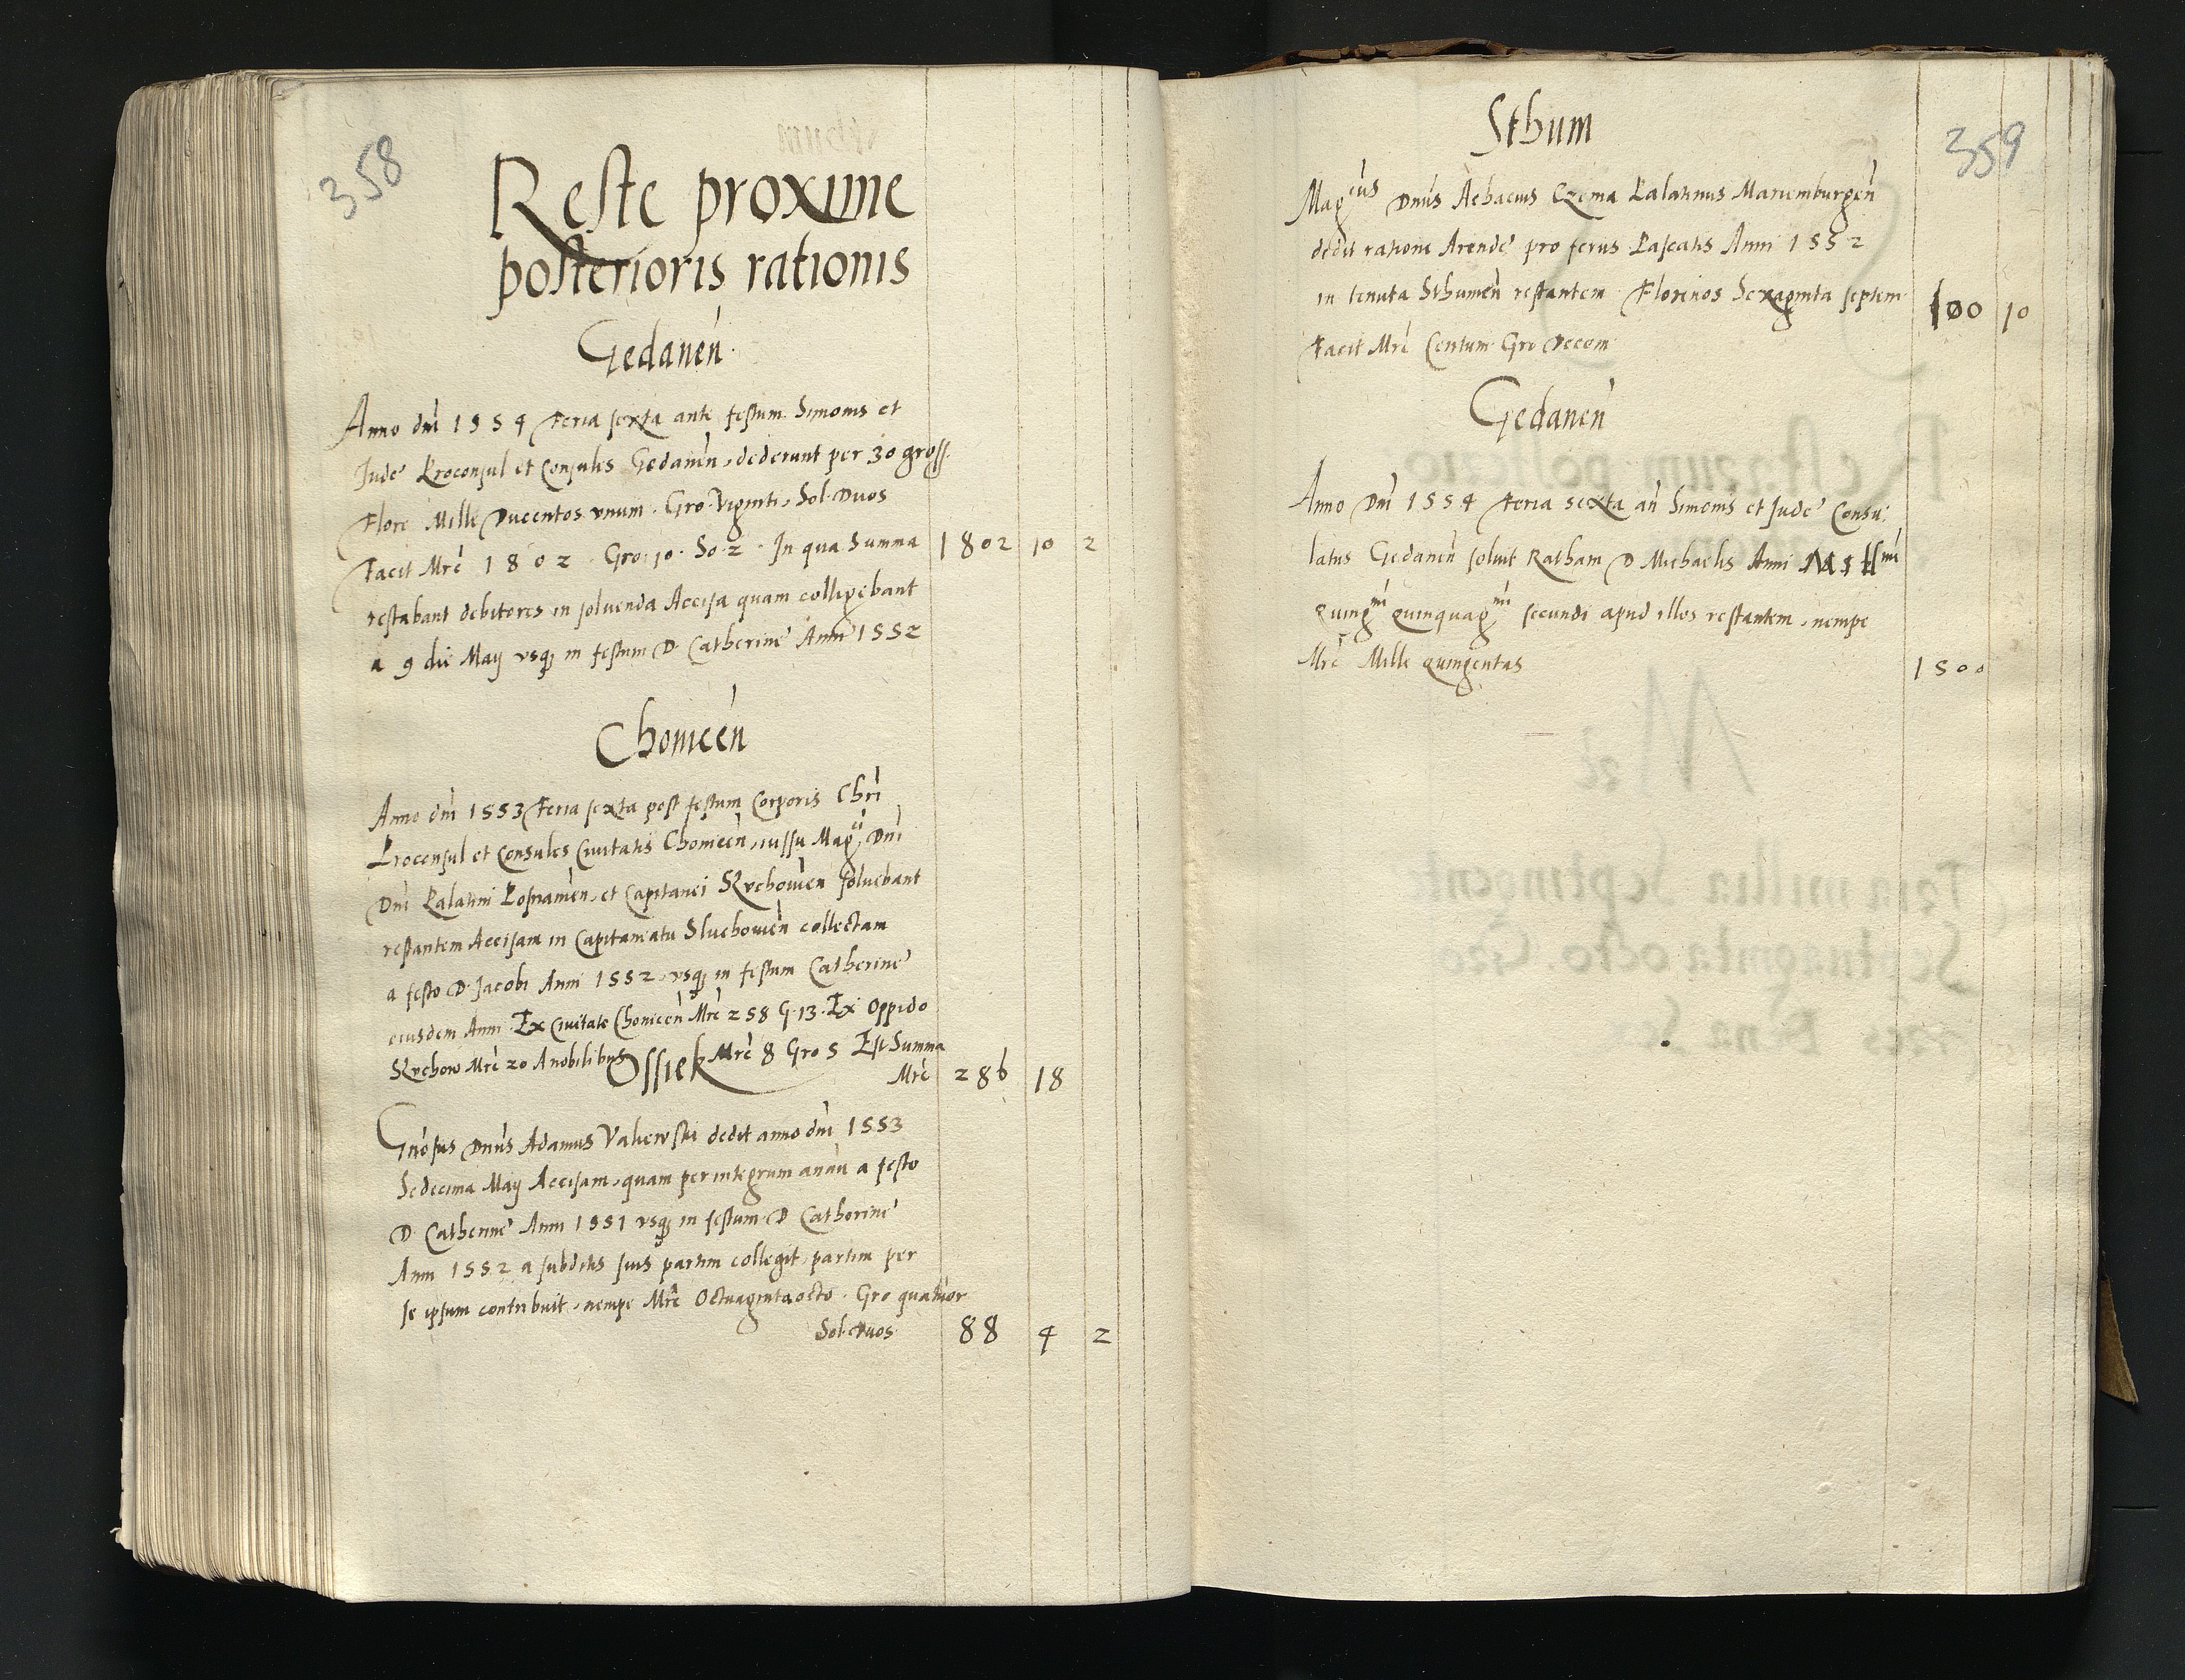 358
Reste proxime
posterioris rationis
Gedanen̄
Anno dnī 1554 Feria sexta ante festum Simonis et
Jude Proconsul et Consules Gedanen̄, dederunt per 30 gross.
Flore Mille Ducentos vnum. Gro. Viginti, Sol. Duos
Facit Mrc̄ 1802. Gro. 10. So. 2. In qua Summa 1802 10 2
restabant debitores in soluenda Accisa quam colligebant
a 9 die Maij vsq̨ in festum D. Catherine Anni 1552
Chonicen̄
Anno dnī 1553 Feria sexta post festum Corporis Chrī
Proconsul et Consules Ciuitatis Chonicen̄, iussu Magci Dnī
Dnī Palatini Posnanien, et Capitanei Slvchowien soluebant
restantem Accisam in Capitaneatu Sluchouien̄ collectam
a festo D. Jacobi Anni 1552, vsq̨ in festum Catherine
eiusdem Anni. Ex Ciuitate Chonicen̄ Mrc̄ 258 G. 13. Ex Oppido
Slvchow Mrc̄ 20 A nobilibus Ossiek Mrc̄ 8 Gro 5 Est Summa
Mrc̄ 286 18
Gnōsus Dnūs Adamus Valiewski dedit anno dnī 1553
Sedecima Maij Accisam, quam per integrum annū a festo
D. Catherine Anni 1551 vsq̨ in festum D. Catherine
Anni 1552 a subditis suis partim collegit, partim per
se ipsum contribuit, nempe Mrc̄ Octuaginta octo. Gro quatuor
Sol. Duos 88 4 2
359
Sthum
Magcus Dnūs Achacius Czema Palatinus Mariemburgen̄
dedit ratione Arende pro ferijs Pascatis Anni 1552
in tenuta Sthumen̄ restantem. Florenos Sexaginta septem
Facit Mrc̄ Centum Gro Decem 100 10
Gedanen̄
Anno Dnī 1554 Feria sexta an̄ Simonis et Jude Consu:
latus Gedanen̄ soluit Ratham D Michaelis Anni Millmi
Quingmi quinquagmi secundi apud illos restantem, nempe
Mrc̄ Mille quingentas 1500